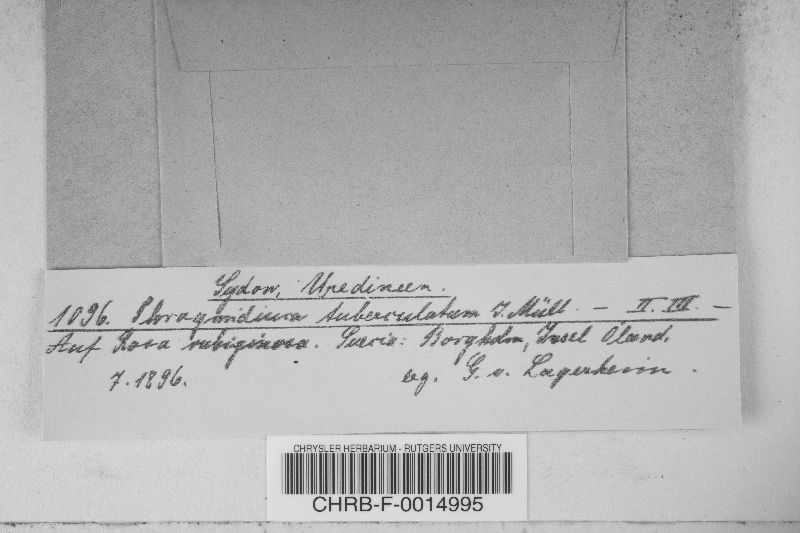 Sydow, Uredineen.
1096. Phragmidium tuberculatum J. Müll. — II. III. —
Auf Rosa rubiginosa. Suecia: Borgholm, Insel Oland.
7.1896. leg. G. v. Lagerheim.
CHRYSLER HERBARIUM - RUTGERS UNIVERSITY
CHRB-F-0014995